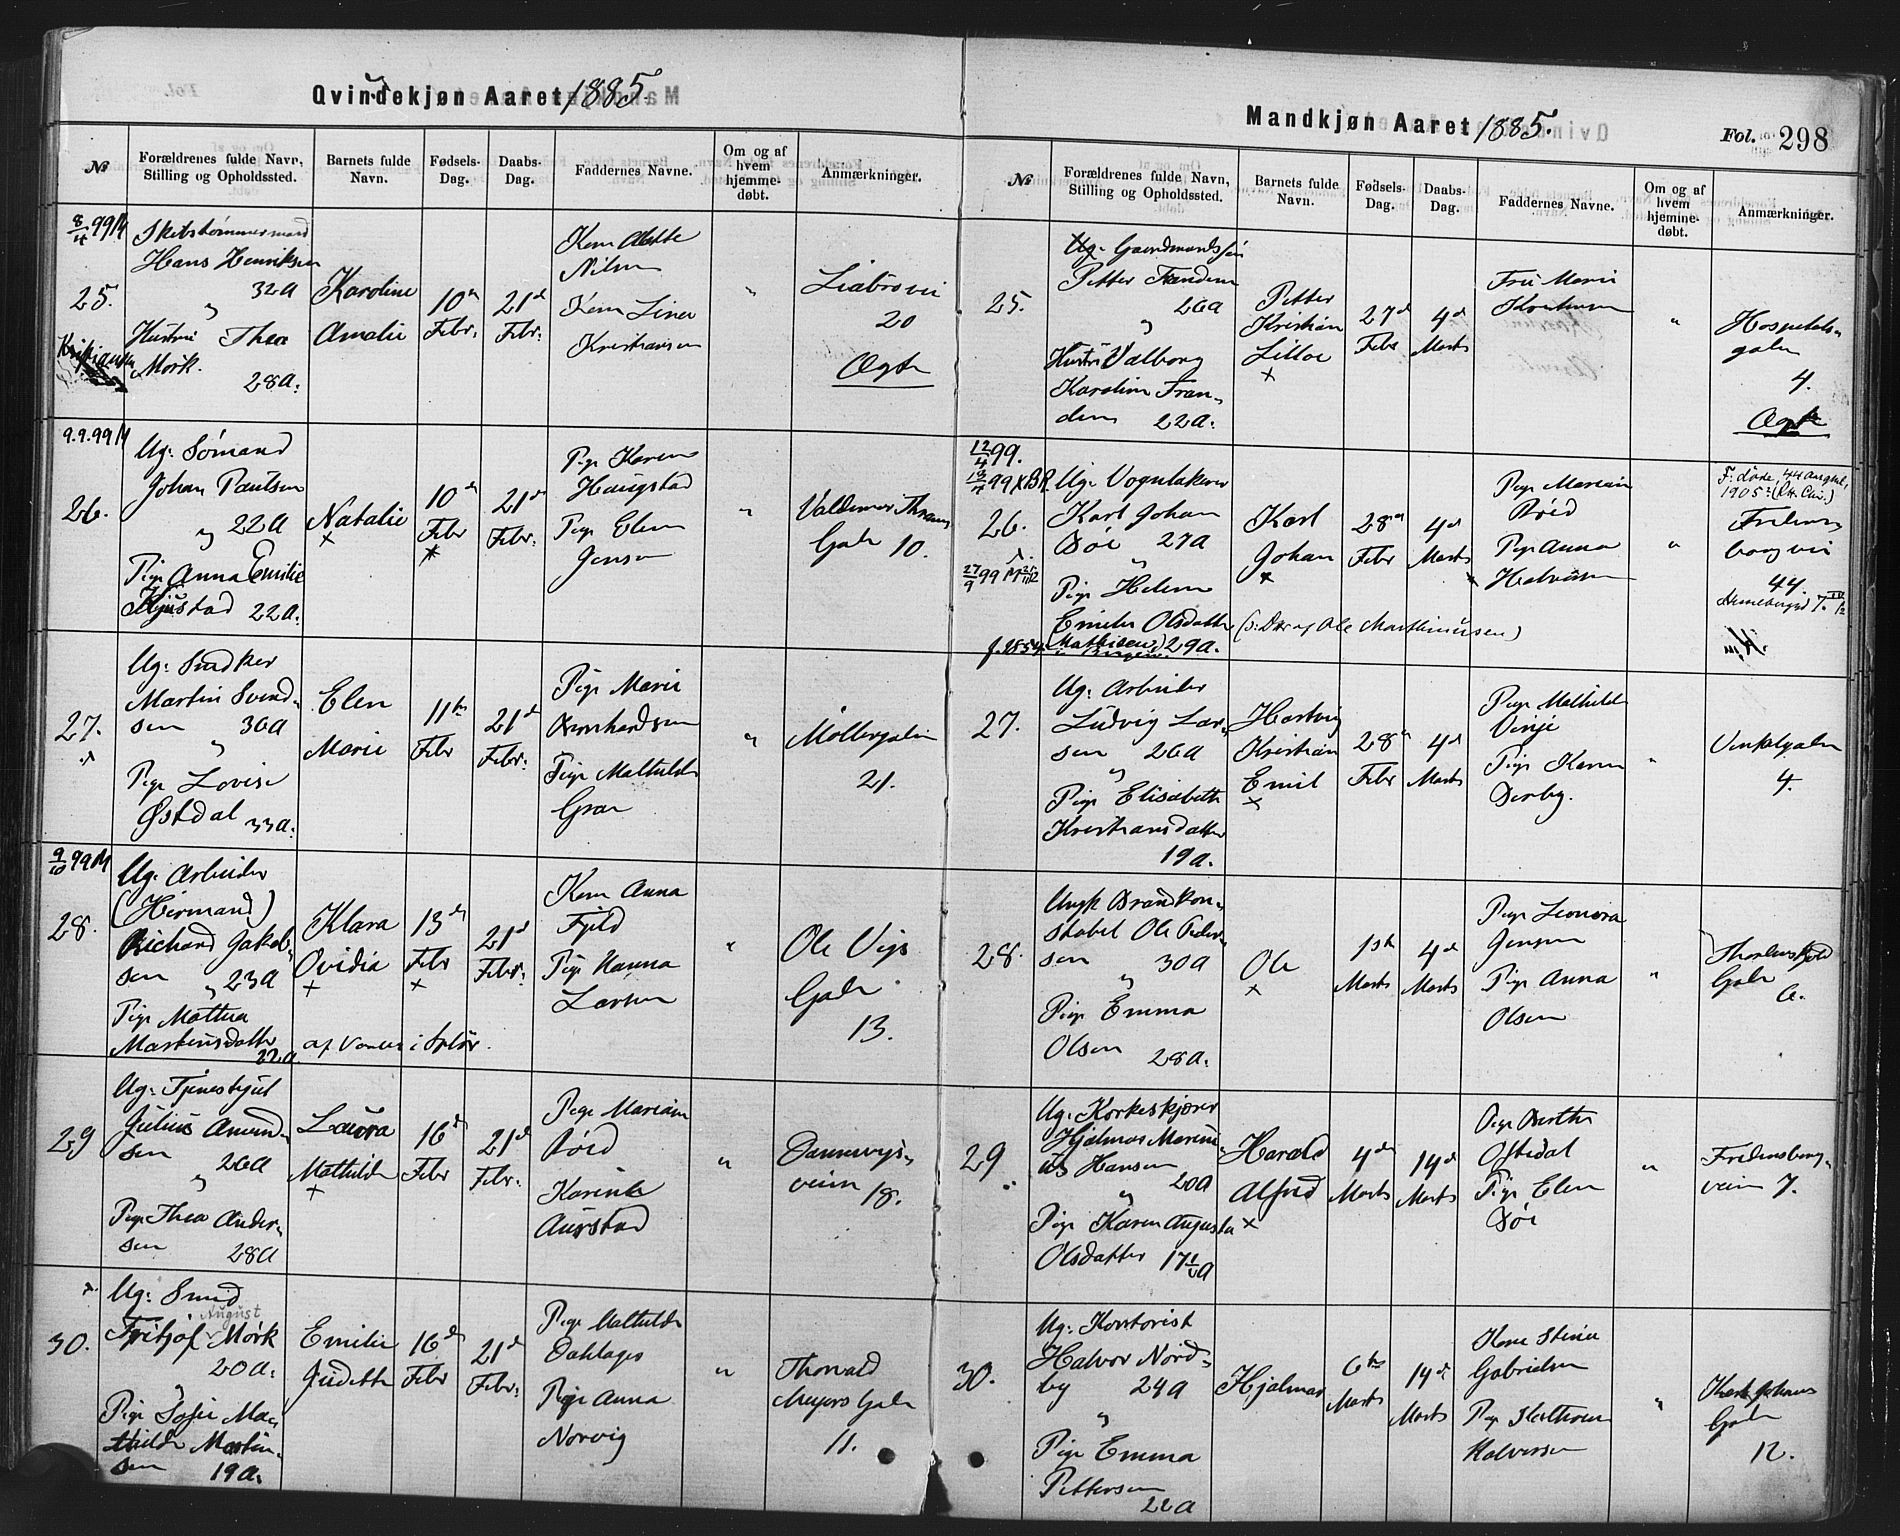 Qvindekjøn Aaret 1885.
№
Forældrenes fulde Navn,
Stilling og Opholdssted.
Barnets fulde
Navn.
Fødsels-
Dag.
Daabs-
Dag.
Faddernes Navne.
Om og af
hvem
hjemme-
døbt.
Anmærkninger.
8/4 99 M
25.
Hans Henriksen
32a
"
Hustru Thea
Mørk.
28a.
Karoline
Amalie
10de
Febr.
21de
Febr.
Nilsen
Kristiansen
"
Liabrovei
20
Ægte
9.9.99 M
26.
Ug. Sømand
Johan Paulsen
" 22a
Pige Anna Emilie
22a.
Natalie
×
10de
Febr
21de
Febr.
Pige Karen
Haugstad
Pige Elen
Jensen
"
Valdemar Thranes
Gade 10.
27.
Ug. Snedker
Martin Svend-
sen 36a
"
Pige Lovise
Østdal 33a.
Elen
Marie
11te
Febr
21de
Febr.
Pige Marie
Bernhardsen
Pige Mathilde
Gran
"
Møllergaden
21.
9/10 99 M
28.
Ug. Arbeider
(Hirmand)
Richard Jakob-
sen " 23a
Pige Mathea
Martinsdatter
22a
Klara
Ovidia
×
13de
Febr
×
21de
Febr.
Kone Anna
Fjeld
Pige Hanna
Larsen
"
Ole Vigs
Gade
13.
29
Ug. Tjenestegut
Julius Amund-
sen 26a
"
Pige Thea Ander-
sen 28a
Laura
Mathilde
×
16de
Febr
21de
Febr.
Pige Mariane
Røed
Karine
Aurstad
"
Dannevigs-
veien
18.
30.
Ug. Smed
August
Fritjof Mørk
20a.
"
Pige Sofie Ma-
thilde Martin-
sen 19a.
Emilie
Judette
16de
Febr
21de
Febr.
Pige Mathilde
Dahlager
Pige Anna
Norvig
"
Thorvald
Meyers Gade
11.
Mandkjøn Aaret 1885.
Fol. 298
№
Forældrenes fulde Navn,
Stilling og Opholdssted.
Barnets fulde
Navn.
Fødsels-
Dag.
Daabs-
Dag.
Faddernes Navne.
Om og af
hvem
hjemme-
døbt.
Anmærkninger.
25.
Ug. Gaardmandssøn
Petter Frandsen
26a
"
Hustru Valborg
Karoline Fran-
dsen 22a.
Petter
Kristian
×
27de
Febr
4de
Marts
Fru Marie
"
Hospitals-
gaden
4.
Ægte
12/4 99.
26.
Ug. Vognlakerer
Karl Johan
Bøe 27a
"
Pige Helene
Emilie Olsdatter
(Mathisen) 29a.
(d: Dtr af Ole Marthinusen)
Karl
Johan
×
28de
Febr
4de
Marts
Pige Mariane
Røed
Pige Anna
Halvorsen
"
Fredens-
borgvei
44.
27.
Ug. Arbeider
Ludvig Lar-
sen 26a
"
Pige Elisabeth
Kristiansdatter
19a.
Hartvig
Kristian
Emil
×
28de
Febr
4de
Marts
Pige Mathilde
Vinje
Pige Karen
Derby.
"
Vinkelgaden
4.
28.
Ungk Brandkon-
stabel Ole Peder-
sen 30a
"
Pige Emma
Olsen
28a.
Ole
×
1ste
Marts
4de
Marts
Pige Leonora
Jensen
Pige Anna
Olsen
"
Gade
6.
29
Ug. Korkeskjærer
Hjalmar Marini-
us Hansen
20a
"
Pige Karen Augusta
Olsdatter 17½a
Harald
Alfred
×
4de
Marts
14de
Marts
Pige Berthe
Oftedal
Pige Elen
Bøe
"
Fredensborg-
veien 7.
30.
Ug. Kontorist
Halvor Nord-
by 24a
"
Pige Emma
Pettersen
22a
Hjalmar
6te
Marts
14de
Marts
Kone Stina
Gabrielsen
Halvorsen
"
Karl Johans
Gade
12.